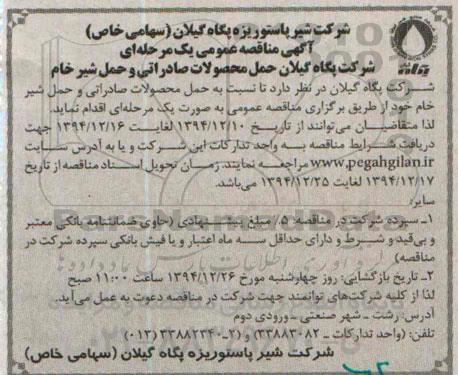 شرکت شیر پاستوریزه پگاه گیلان (سهامی خاص)
آگهی مناقصه عمومی یک مرحله‌ای
شرکت پگاه گیلان حمل محصولات صادراتی و حمل شیر خام
پگاه
شرکت پگاه گیلان در نظر دارد تا نسبت به حمل محصولات صادراتی و حمل شیر
خام خود از طریق برگزاری مناقصه عمومی به صورت یک مرحله‌ای اقدام نماید.
لذا متقاضیان می‌توانند از تاریخ ۱۳۹۴/۱۲/۱۰ لغایت ۱۳۹۴/۱۲/۱۶ جهت
دریافت شرایط مناقصه به واحد تدارکات این شرکت و یا به آدرس سایت
www.pegahgilan.ir مراجعه نمایند. زمان تحویل اسناد مناقصه از تاریخ
۱۳۹۴/۱۲/۱۷ لغایت ۱۳۹۴/۱۲/۲۵ می‌باشد.
سایر:
۱ـ سپرده شرکت در مناقصه: ۵٪ مبلغ پیشنهادی (حاوی ضمانتنامه بانکی معتبر
و بی‌قید و شرط و دارای حداقل سه ماه اعتبار و یا فیش بانکی سپرده شرکت در
مناقصه)
۲ـ تاریخ بازگشایی: روز چهارشنبه مورخ ۱۳۹۴/۱۲/۲۶ ساعت ۱۱:۰۰ صبح
لذا از کلیه شرکت‌های توانمند جهت شرکت در مناقصه دعوت به عمل می‌آید.
آدرس: رشت ـ شهر صنعتی ـ ورودی دوم
تلفن: (واحد تدارکات ـ ۳۳۸۸۳۰۸۲) و (۲-۳۳۸۸۲۳۴۰) (۰۱۳)
شرکت شیر پاستوریزه پگاه گیلان (سهامی خاص)